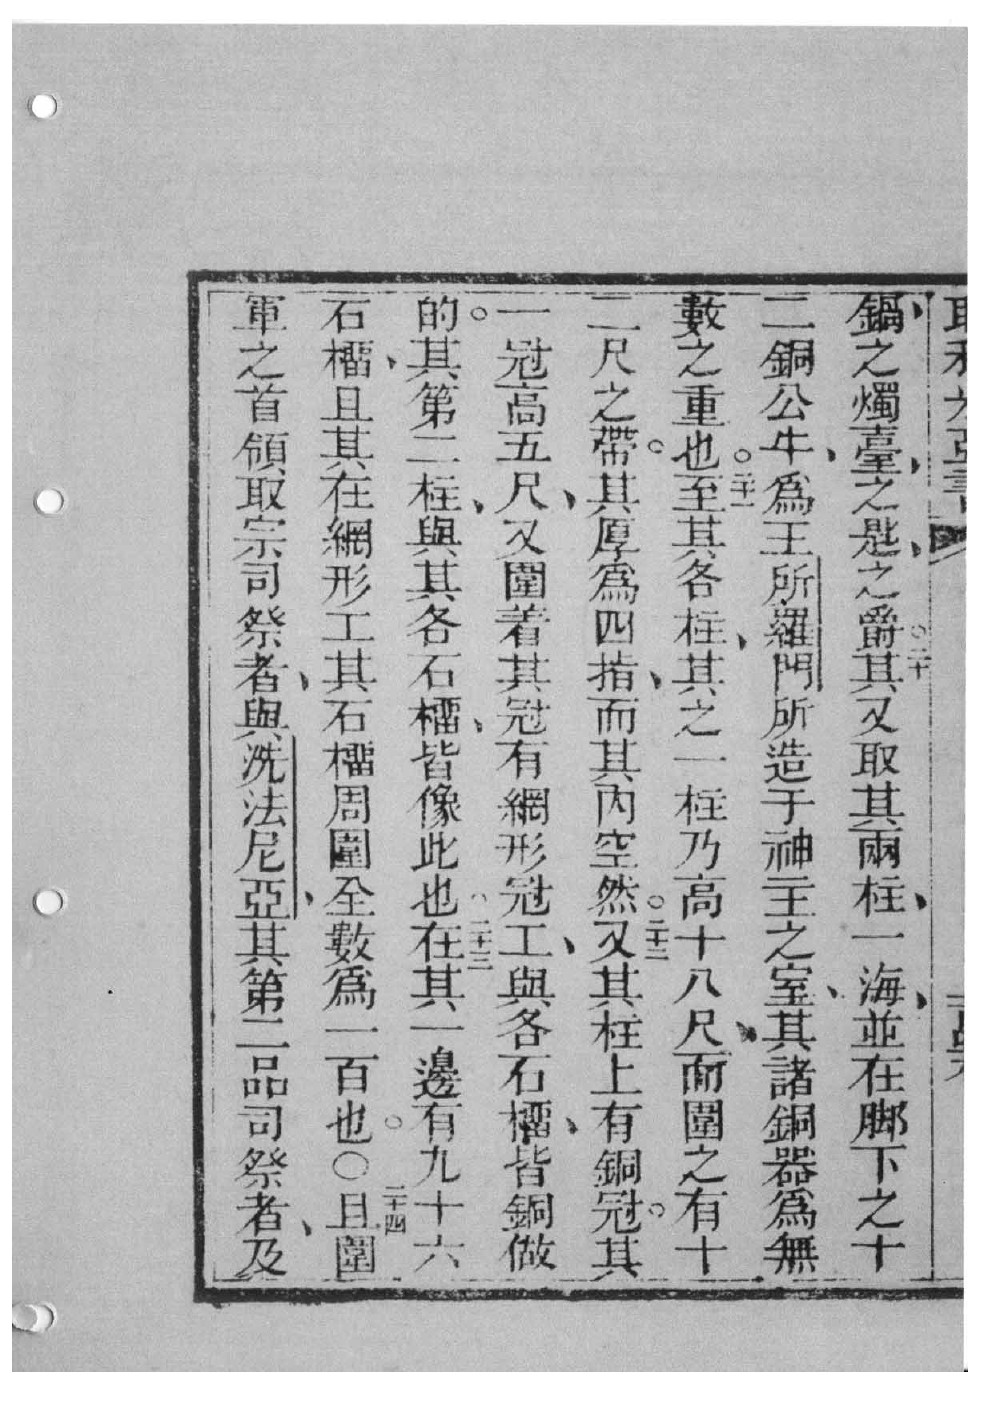 鍋、之燭臺、之匙、之爵。二十其又取其兩柱、一海、並在脚下之十
二銅公牛、爲王所羅門所造于神主之室、其諸銅器爲無
數之重也。二十一至其各柱、其之一柱乃高十八尺、而圍之有十
二尺之帶。其厚爲四指、而其內空然。二十二又其柱上有銅冠。其
一冠高五尺、又圍着其冠有網形冠工、與各石橊、皆銅做
的。其第二柱、與其各石橊、皆像此也。二十三在其一邊有九十六
石橊、且其在網形工其石橊周圍全數爲一百也。〇二十四且圍
軍之首領取宗司祭者、與洗法尼亞、其第二品司祭者、及